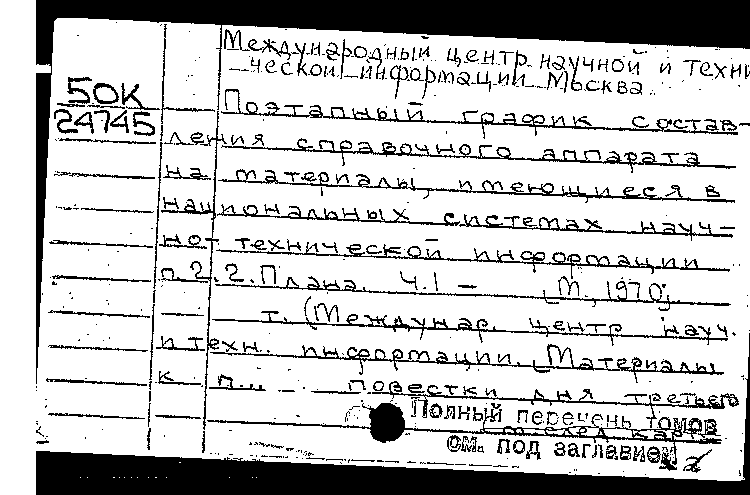 Международный центр научной и техни
ческой информации Москва.
50К
24745
Поэтапный график состав-
ления справочного аппарата
на материалы, имеющиеся в
национальных системах науч-
но-технической информации
п.2.2. Плана. Ч.1 – [М., 1970].
т. (Междунар. центр науч.
и техн. информации. [Материалы
к п... повестки дня третьего
Полный перечень томов
см. под заглавием